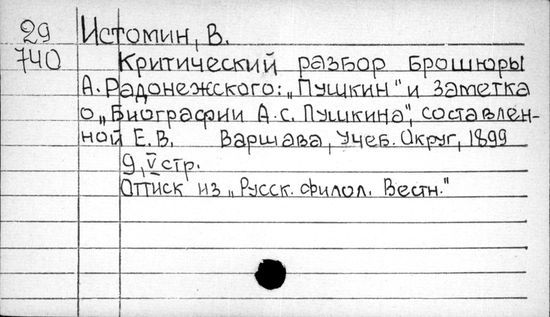 29 Истомин, В.
740 Критический разбор брошюры
А. Радонежского: „Пушкин" и заметка
о „Биографии А.С. Пушкина", составлен-
ной Е.В. Варшава, Учеб. Округ, 1899
9, V стр.
Оттиск из „Русск. филол. Вестн."